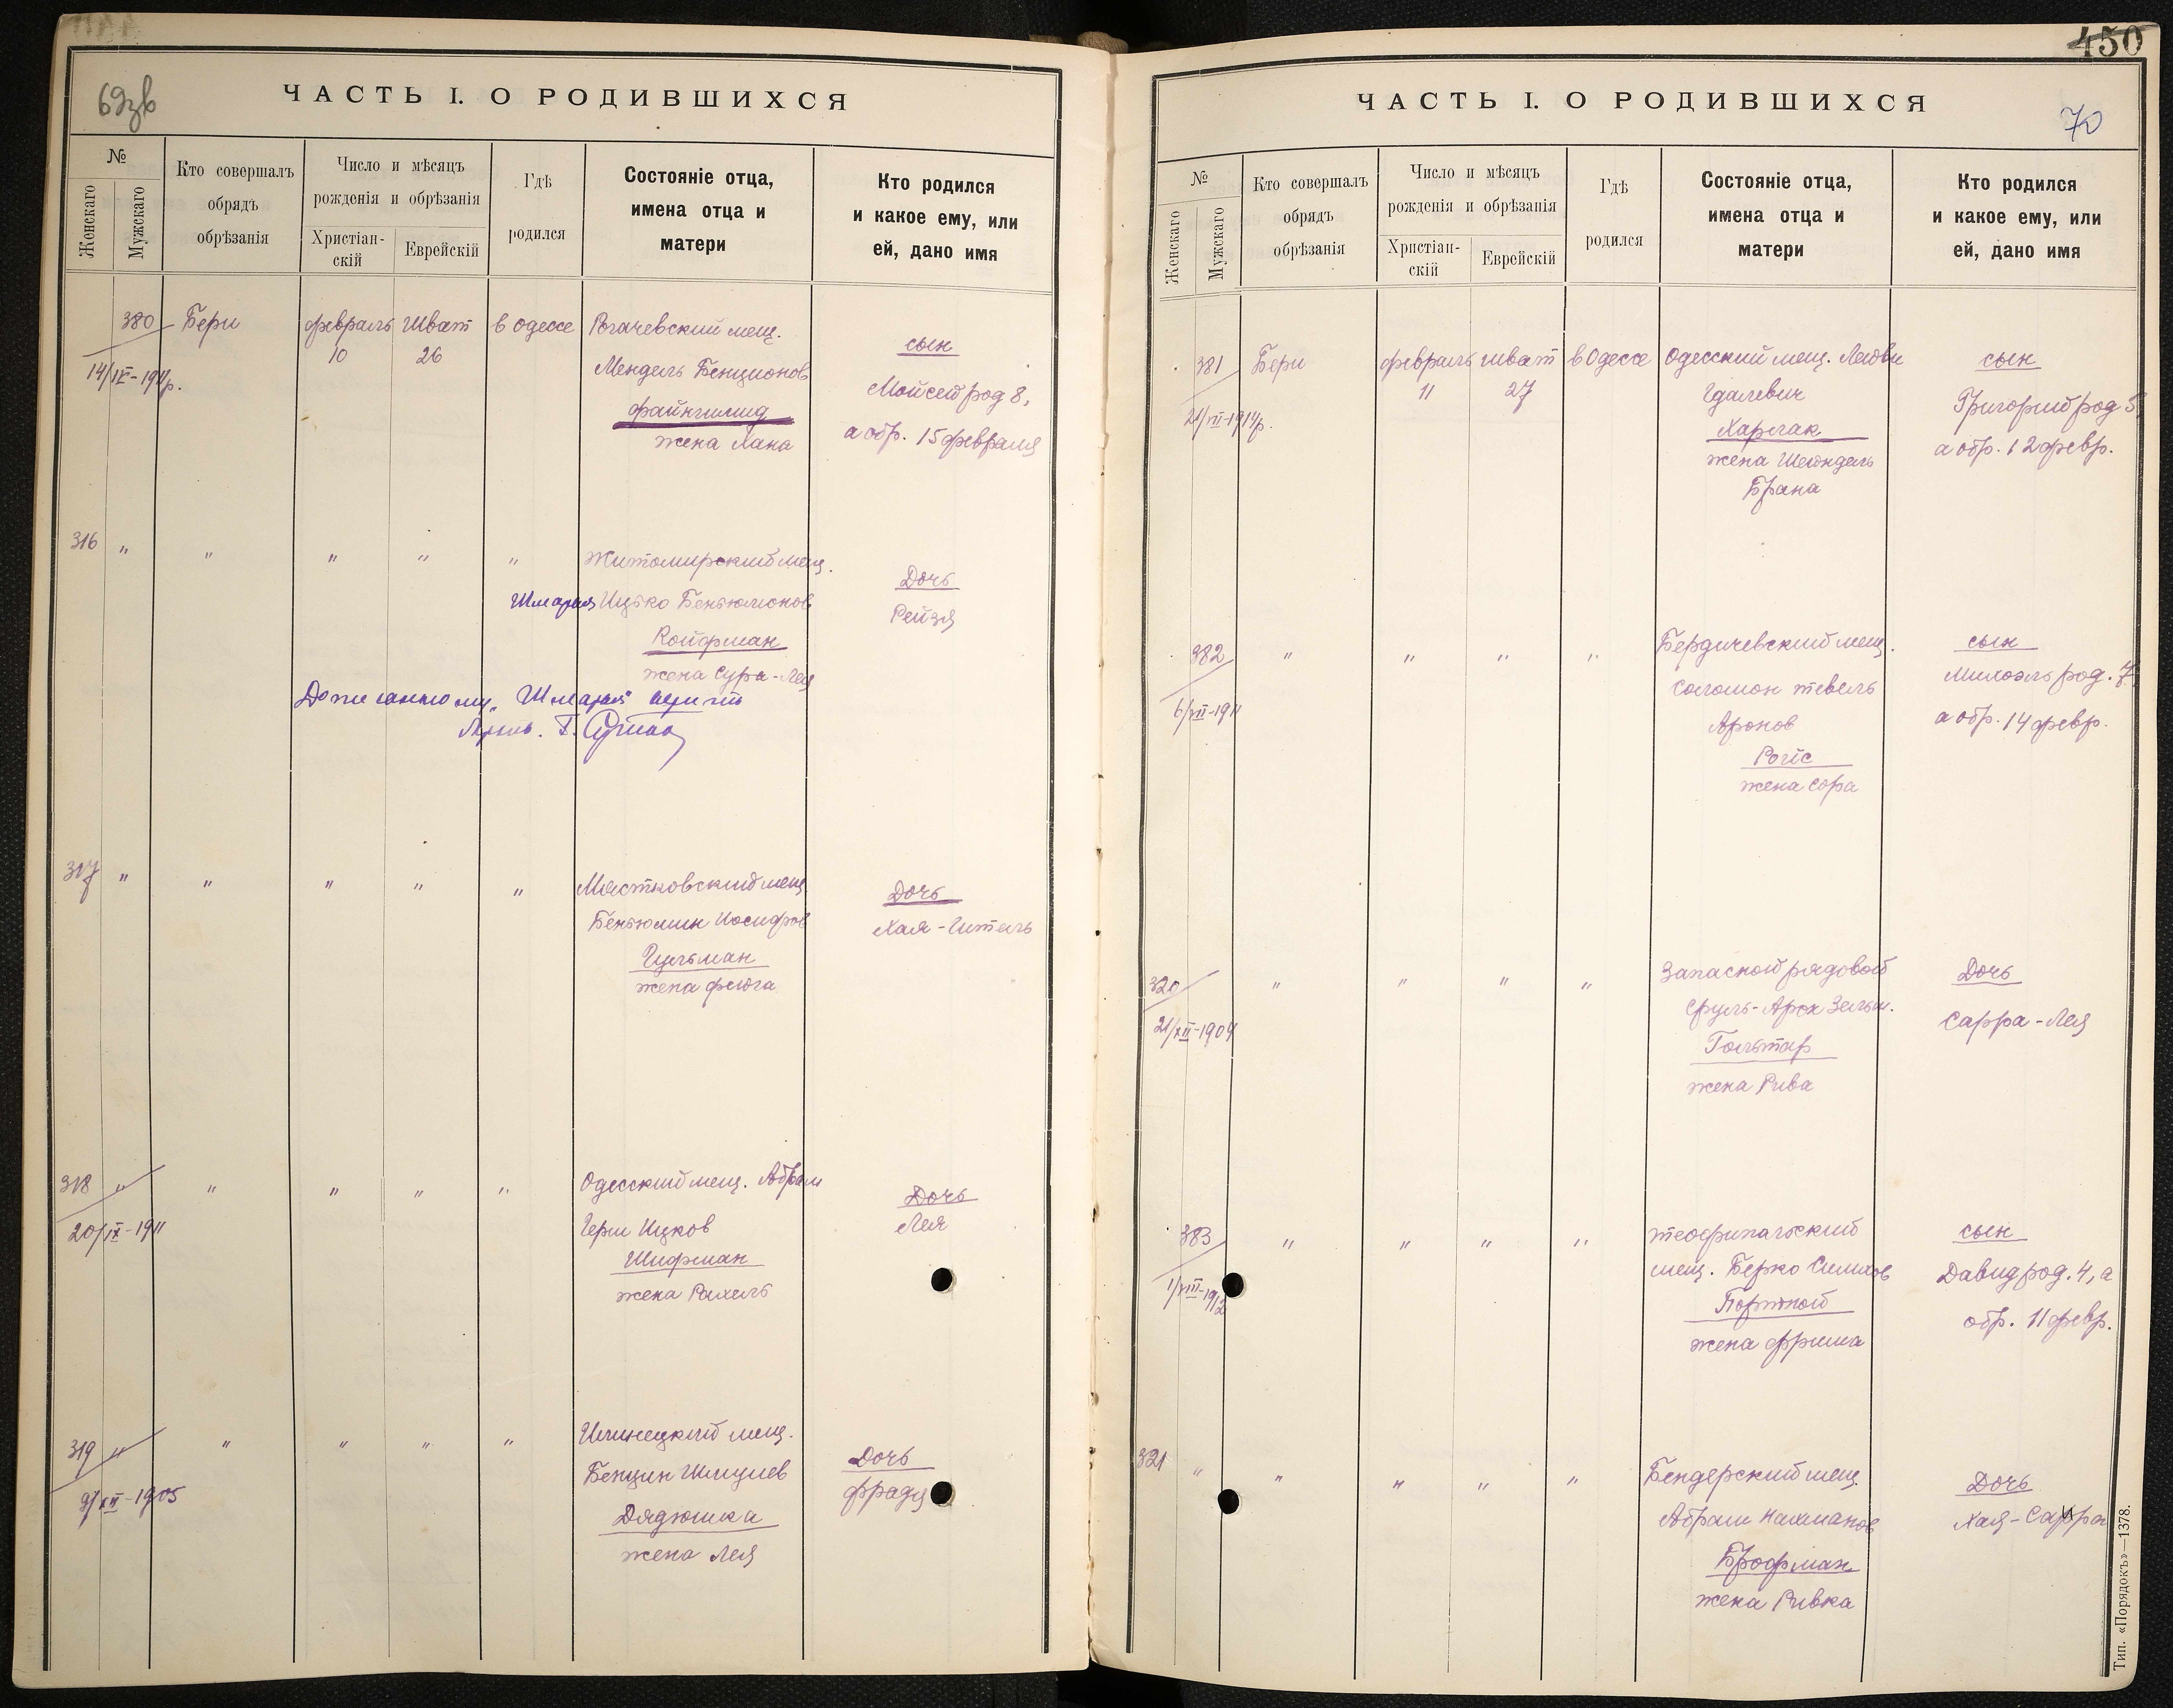 69 зв
ЧАСТЬ I. О РОДИВШИХСЯ
№
Женскаго
Мужскаго
Кто совершалъ
обрядъ
обрѣзанія
Число и мѣсяцъ
рожденія и обрѣзанія
Христіан-
скій
Еврейскій
Гдѣ
родился
Состояніе отца,
имена отца и
матери
Кто родился
и какое ему, или
ей, дано имя
380 Бери февраль Шват в Одессе Рогачевский мещ.
10 26
14/IX-1911р.
Мендель Бенционов
Файнгшмид
жена Хана
сын
Мойсей род 8,
а обр. 15 февраля
316 " " " " " Житомирский мещ.
Шмарья Ицько Беньюминов
Койфман
жена Сура-Лея
Дочь
Рейзя
Дописанному „Шмарья"
317 " " " " "
Беньюмин Иосифов
Гельман
жена Фейга
Дочь
Хая-Гитель
318 " " " " " Одесский мещ. Абрам
20/IX-1911
Герш Ицков
Шифман
жена Рахель
Дочь
Лея
319 " " " " " Илинецкий мещ.
9/XII-1905
Бенцин Шмулев
Дядюшка
жена Лея
Дочь
Фрадя
450
ЧАСТЬ I. О РОДИВШИХСЯ
70
№
Женскаго
Мужскаго
Кто совершалъ
обрядъ
обрѣзанія
Число и мѣсяцъ
рожденія и обрѣзанія
Христіан-
скій
Еврейскій
Гдѣ
родился
Состояніе отца,
имена отца и
матери
Кто родился
и какое ему, или
ей, дано имя
381 Бери февраль шват в Одессе Одесский мещ. Лейви
11 27
21/VII-1914р.
Гдалевич
Харлак
жена Шейндель
Брана
сын
Григорий род 5
а обр. 12 февр.
382 " " " " Бердичевский мещ.
6/VII-1911
Соломон Тевель
Аронов
Ройс
жена Сора
сын
Михоэль род. 7,
а обр. 14 февр.
320 " " " " Запасной рядовой
21/XII-1909
Сруль-Арон Зельм.
Гольтар
жена Рива
Дочь
Сарра-Лея
383 " " " " Теофипольский
1/VIII-1912
мещ. Берко Симхов
Портной
жена Фрима
сын
Давид род. 4, а
обр. 11 февр.
321 " " " " " Бендерский мещ.
Абрам Нахманов
Брофман
жена Ривка
Дочь
Хая-Сарра
Тип. «Порядокъ»—1378.